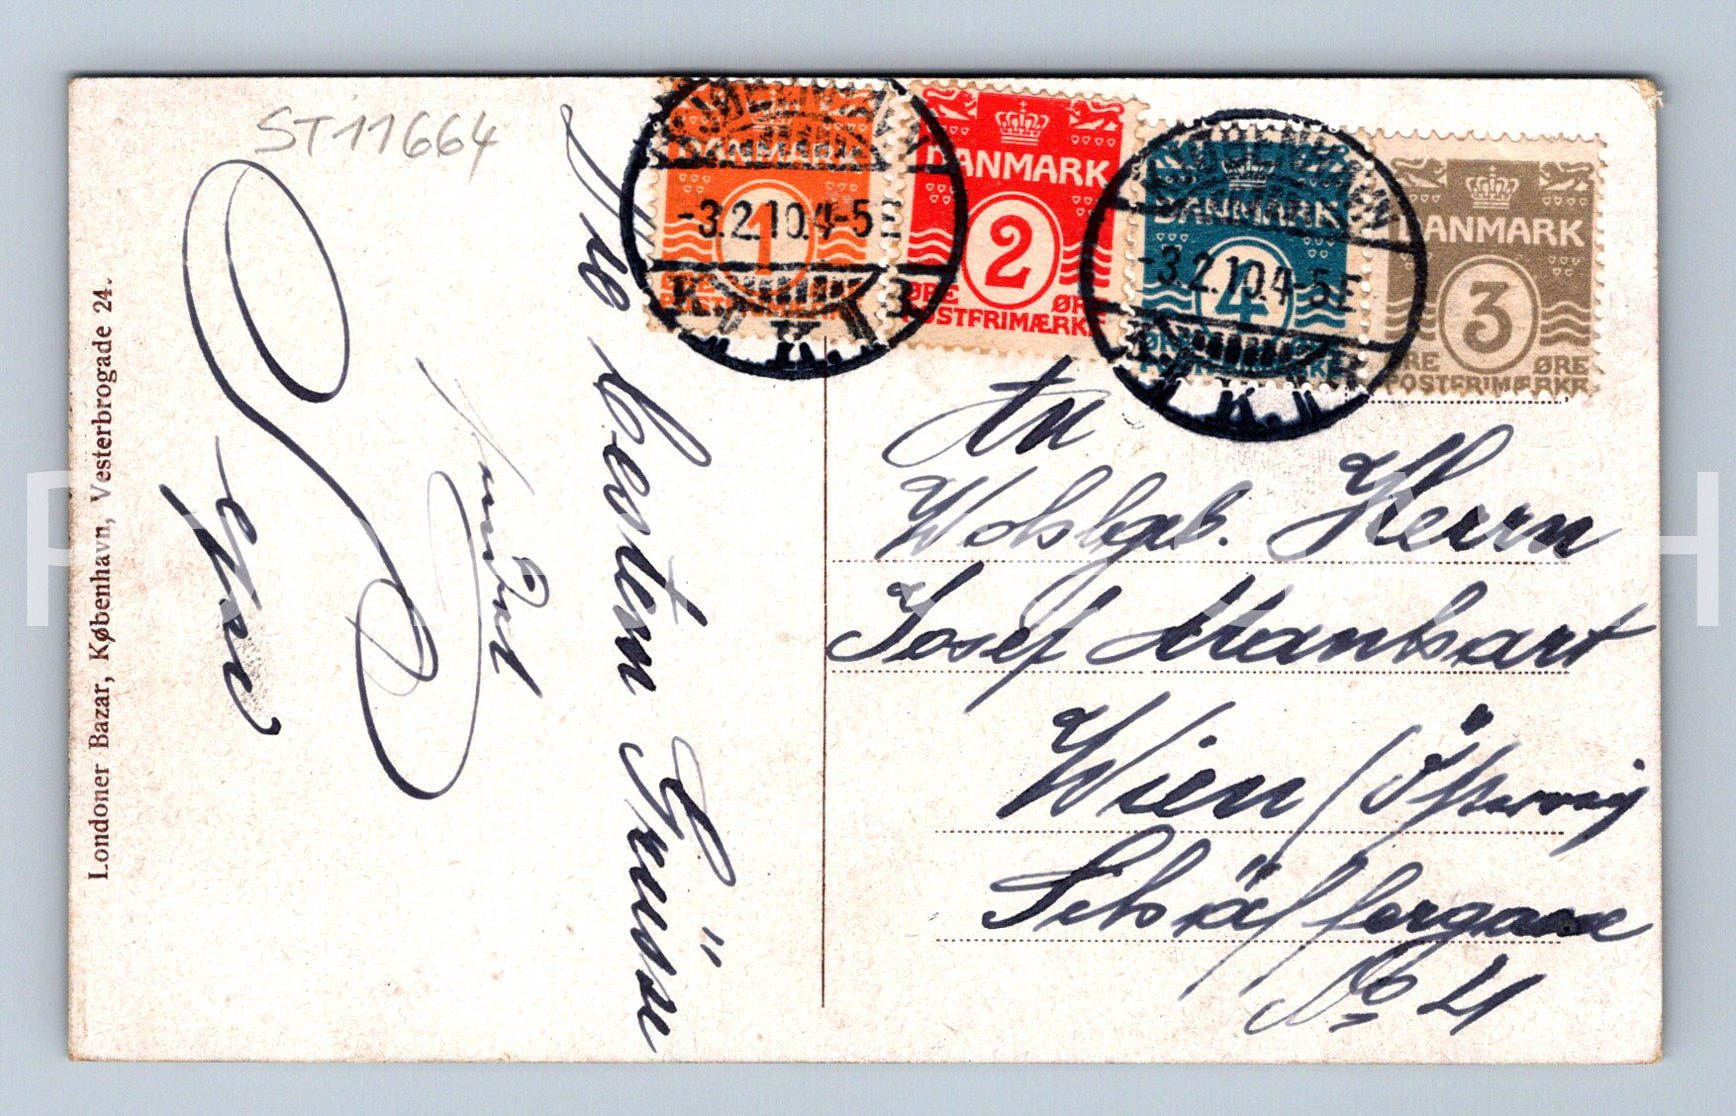 ST11664
Londoner Bazar, København, Vesterbrogade 24.
Die besten Grüsse
sendet
KJØBENHAVN
-3.2.10.4-5E
K. K. B.
DANMARK
1
ØRE ØRE
POSTFRIMÆRKE
DANMARK
2
ØRE ØRE
POSTFRIMÆRKE
KJØBENHAVN
-3.2.10.4-5E
K. K. B.
DANMARK
4
ØRE ØRE
POSTFRIMÆRKE
DANMARK
3
ØRE ØRE
POSTFRIMÆRKE
An
Wohlgeb. Herrn
Josef Manhart
Wien /
Schäffergasse
No 21